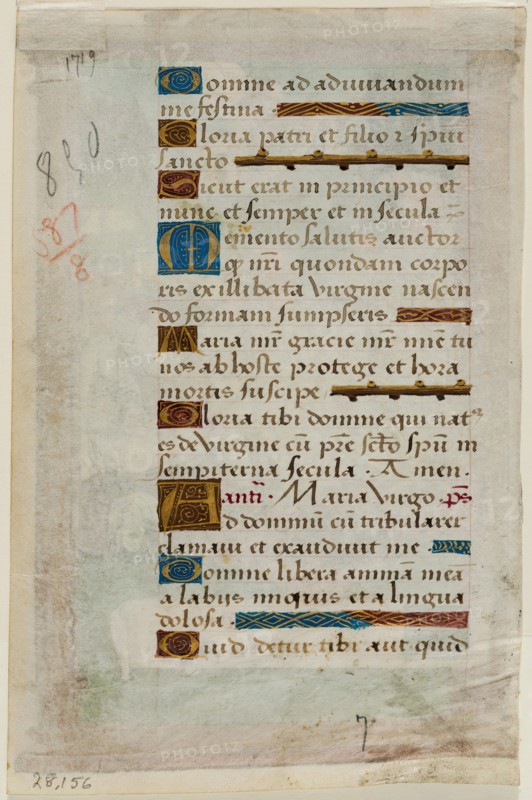 1719
850
687/8
Domine ad adiuuandum
me festina ·
Gloria patri et filio ⁊ spũi
sancto
Sicut erat in principio et
nunc et semper et in secula
Memento salutis auctor
qꝫ nr̃i quondam corpo
ris ex illibata virgine nascen
do formam sumpseris
Maria mr̃ gracie mr̃ mie tu
nos ab hoste protege et hora
mortis suscipe
Gloria tibi domine qui nat⁹
es de virgine cũ pr̃e sc̃to spũ in
sempiterna secula · Amen ·
antĩ · Maria virgo · p̃s
Ad dominũ cũ tribularer
clamaui et exaudiuit me ·
Domine libera animã mea
a labijs iniquis et a lingua
dolosa ·
Quid detur tibi aut quid
7
28,156